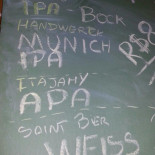 IPA - BOCK
HANDWERCK
MUNICH
IPA
ITAJAHY
APA
SAINT BIER
WEISS
R$